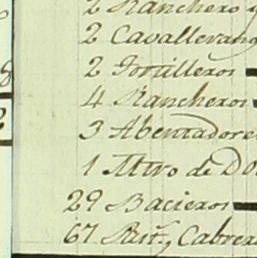 2 Ranchero y
2 Cavalleran
2 Tortilleros
4 Rancheros
3 Abentadore
1 Mtro de Do
29 Bacieros
67 Past.s y Cabrer
8
2